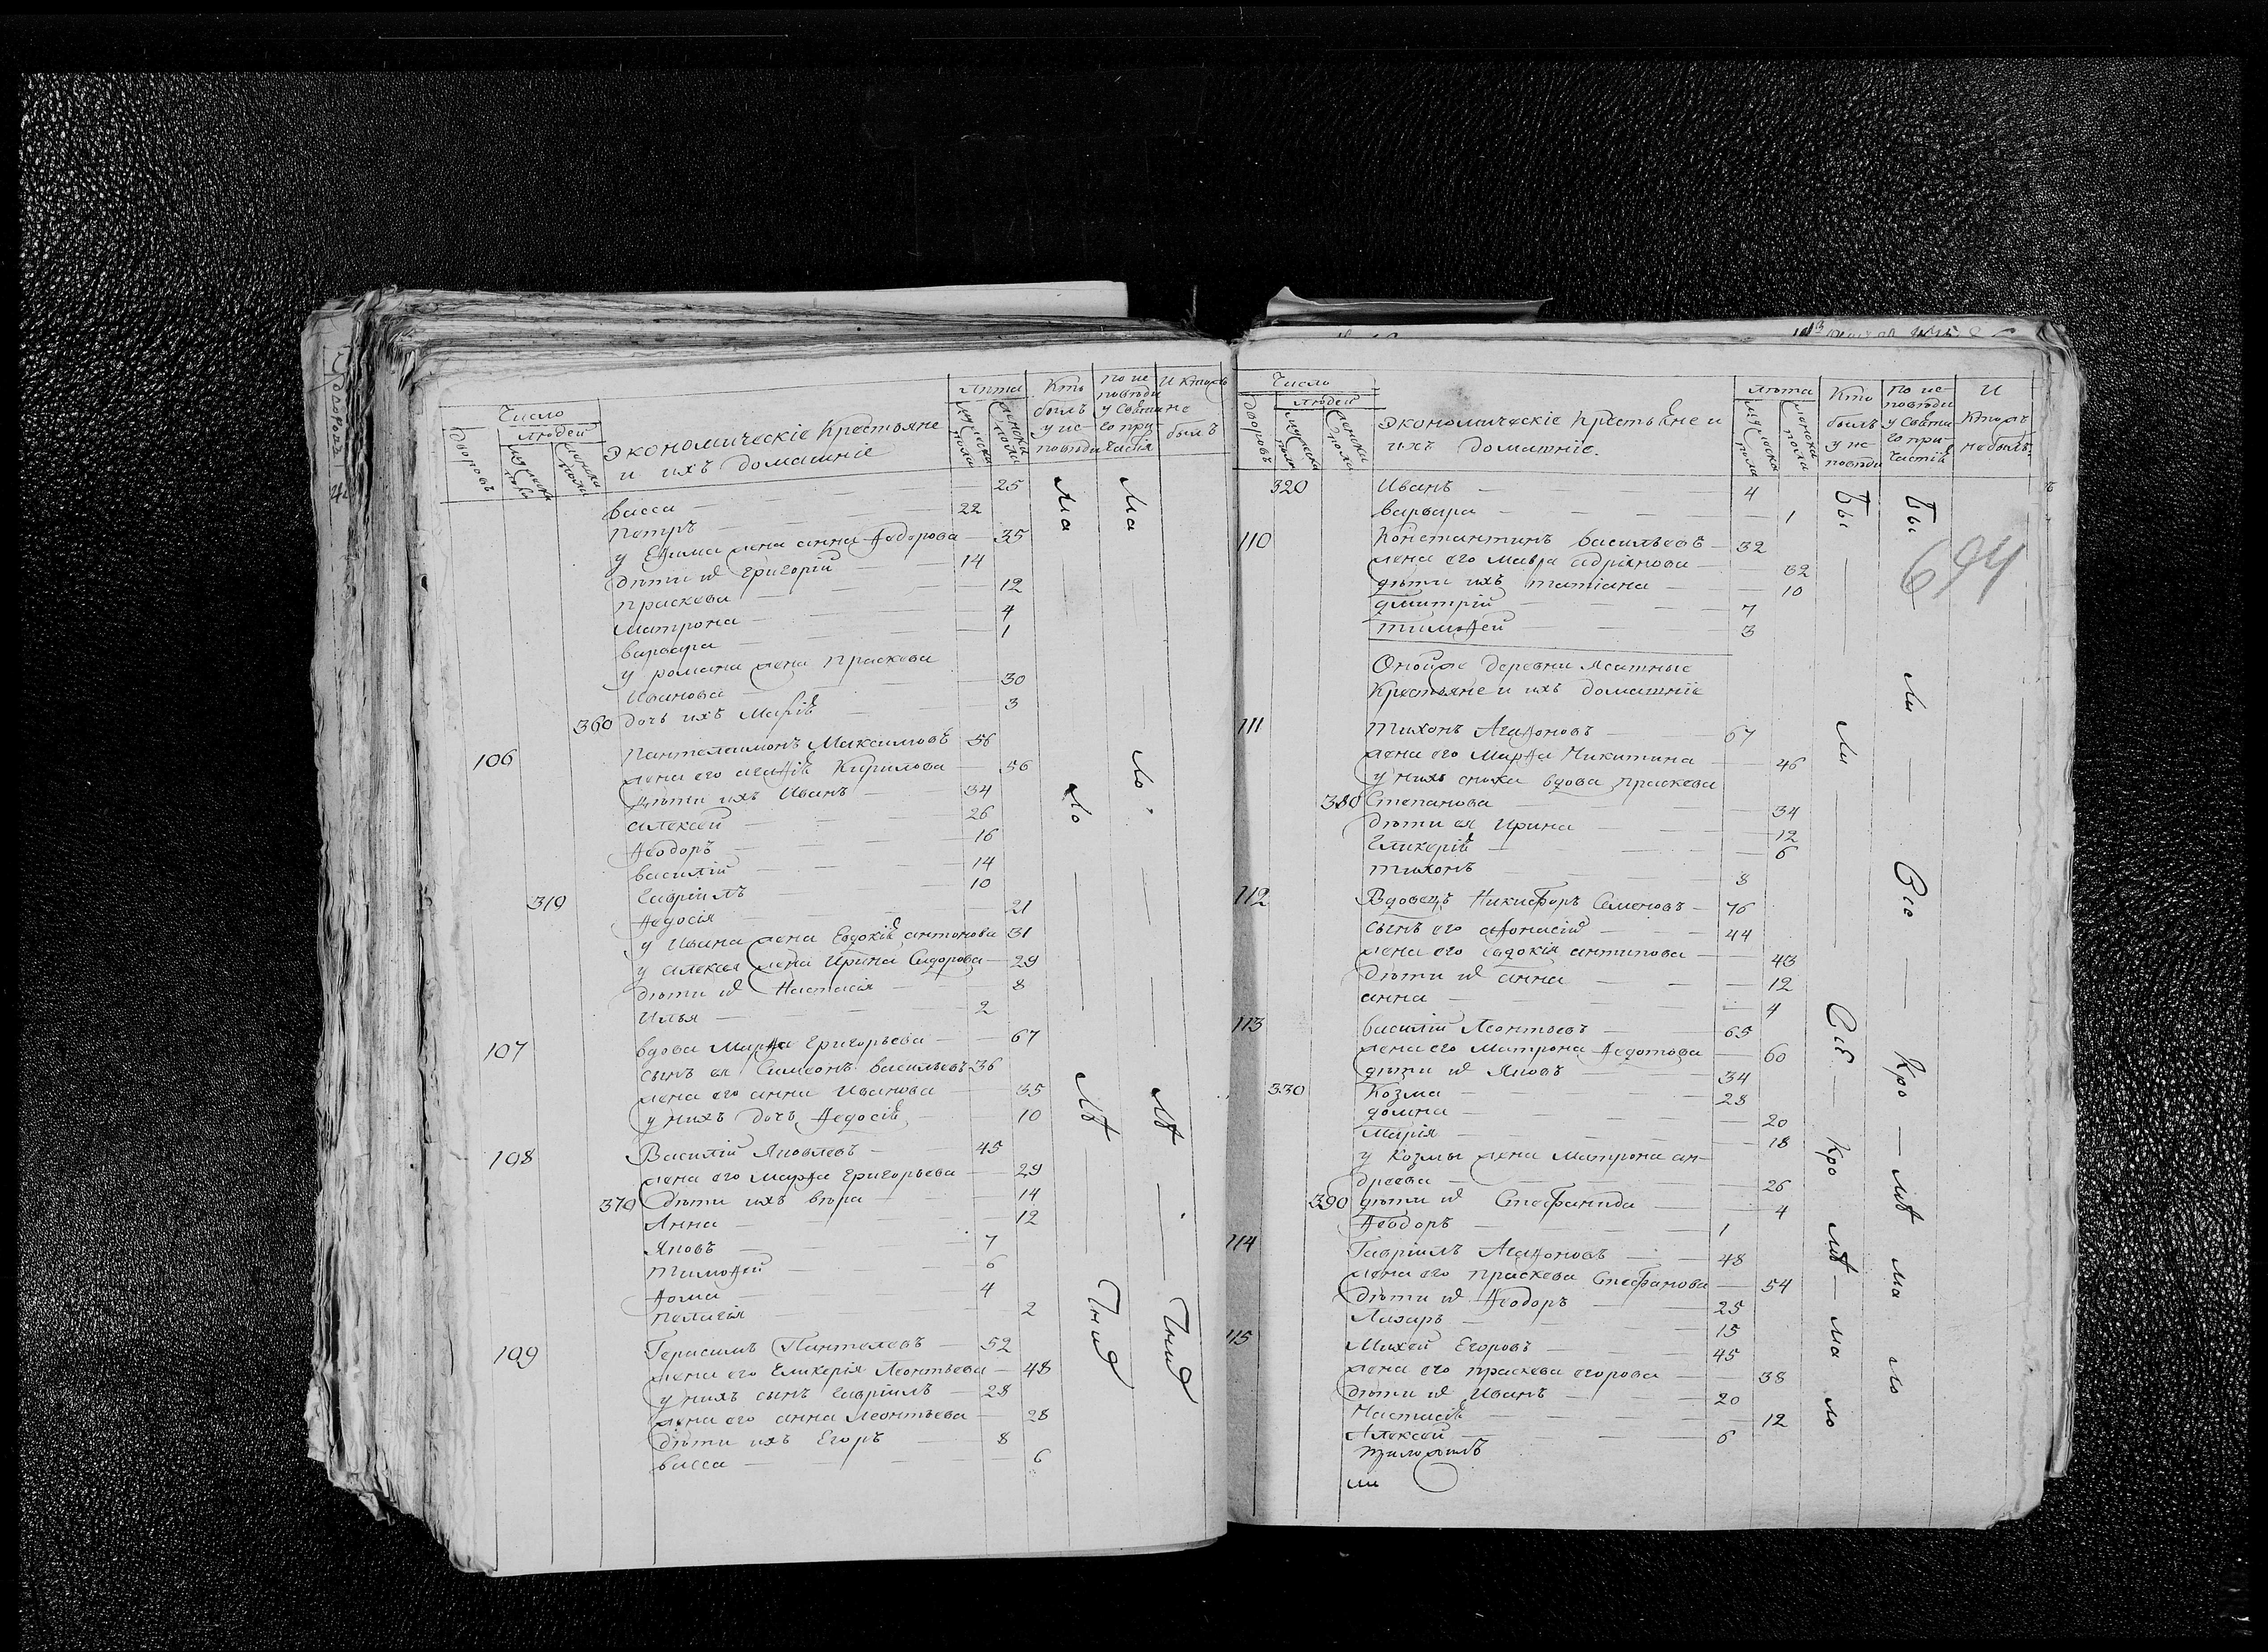 Число
людей
дворовъ
мужеска пола
женска пола
Экономическіе Крестьяне
и ихъ домашніе
лѣта
мужеска пола
женска пола
Кто былъ у исповѣди
по исповѣди у святаго причастія
И кто не былъ
васса — 25
петръ — 22
у Ефима жена анна Ѳедорова — 35
дѣти ихъ григорій — 14
праскева — 12
матрона — 4
варвара — 1
у романа жена праскева
Иванова — 30
360 дочь ихъ Марія — 3
106 Пантелаимонъ Максимовъ 56
жена его агафія Кирилова — 56
дѣти ихъ Иванъ — 34
алексей — 26
Ѳеодоръ — 16
василій — 14
319 гавріилъ — 10
Ѳедосія — 21
у Ивана жена Евдокія антонова 31
у алексея жена Ирина Сидорова — 29
дѣти ихъ Настасія — 8
Илья — 2
107 вдова Марѳа григорьева — 67
сынъ ея Симеонъ васильевъ 36
жена его анна Иванова — 35
у нихъ дочь Ѳедосія — 10
108 Василій Яковлевъ — 45
жена его марѳа григорьева — 29
370 дѣти ихъ вѣра — 14
Анна — 12
Яковъ — 7
тимоѳей — 6
Ѳома — 4
пелагія — 2
109 Герасимъ Пантелеевъ — 52
жена его Гликерія Леонтьева — 48
у нихъ сынъ гавріилъ — 28
жена его анна леонтьева — 28
дѣти ихъ Егоръ — 8
васса — 6
ма ло лѣт ния
ма ло лѣт ния
Число
людей
дворовъ
мужеска пола
женска пола
Экономическіе Крестьяне и
ихъ домашніе.
лѣта
мужеска пола
женска пола
Кто былъ у исповѣди
по исповѣди у святаго причастія
И кто не былъ.
694
320 Иванъ — 4
варвара — 1
110 Константинъ васильевъ — 32
жена его мавра адріянова — 32
дѣти ихъ татіана — 10
дмитрій — 7
тимоѳей — 3
Оной же деревни ясашные
Крестьяне и ихъ домашніе
111 Тихонъ Агаѳоновъ — 67
жена его Марѳа Никитина — 46
у нихъ сноха вдова праскева
380 Степанова — 34
дѣти ея Ирина — 12
Гликерія — 6
тихонъ — 8
112 Вдовецъ Никифоръ Семеновъ — 76
сынъ его афонасій — 44
жена его евдокія антипова — 43
дѣти ихъ анна — 12
анна — 4
113 василій Леонтьевъ — 65
жена его Матрона Ѳедотова — 60
дѣти ихъ Яковъ — 34
330 Козма — 28
домна — 20
Марія — 18
у Козмы жена матрона ан-
дреева — 26
390 дѣти ихъ Стефанида — 4
Ѳеодоръ — 1
114 Гавріилъ Агаѳоновъ — 48
жена его праскева Стефанова — 54
дѣти ихъ Ѳеодоръ — 25
Лазарь — 15
115 Михей Егоровъ — 45
жена его праскева егорова — 38
дѣти ихъ Иванъ — 20
Настасія — 12
Алексей — 6
ми
Бы ли Всѣ кро мѣ ма ло
Бы ли Все Кро мѣ ма ло